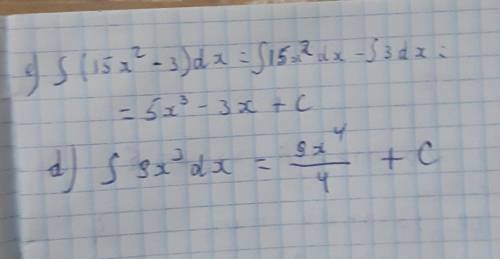 c) ∫(15x² - 3)dx = ∫15x²dx - ∫3dx =
= 5x³ - 3x + C
d) ∫ 9x³dx = 9x⁴/4 + C